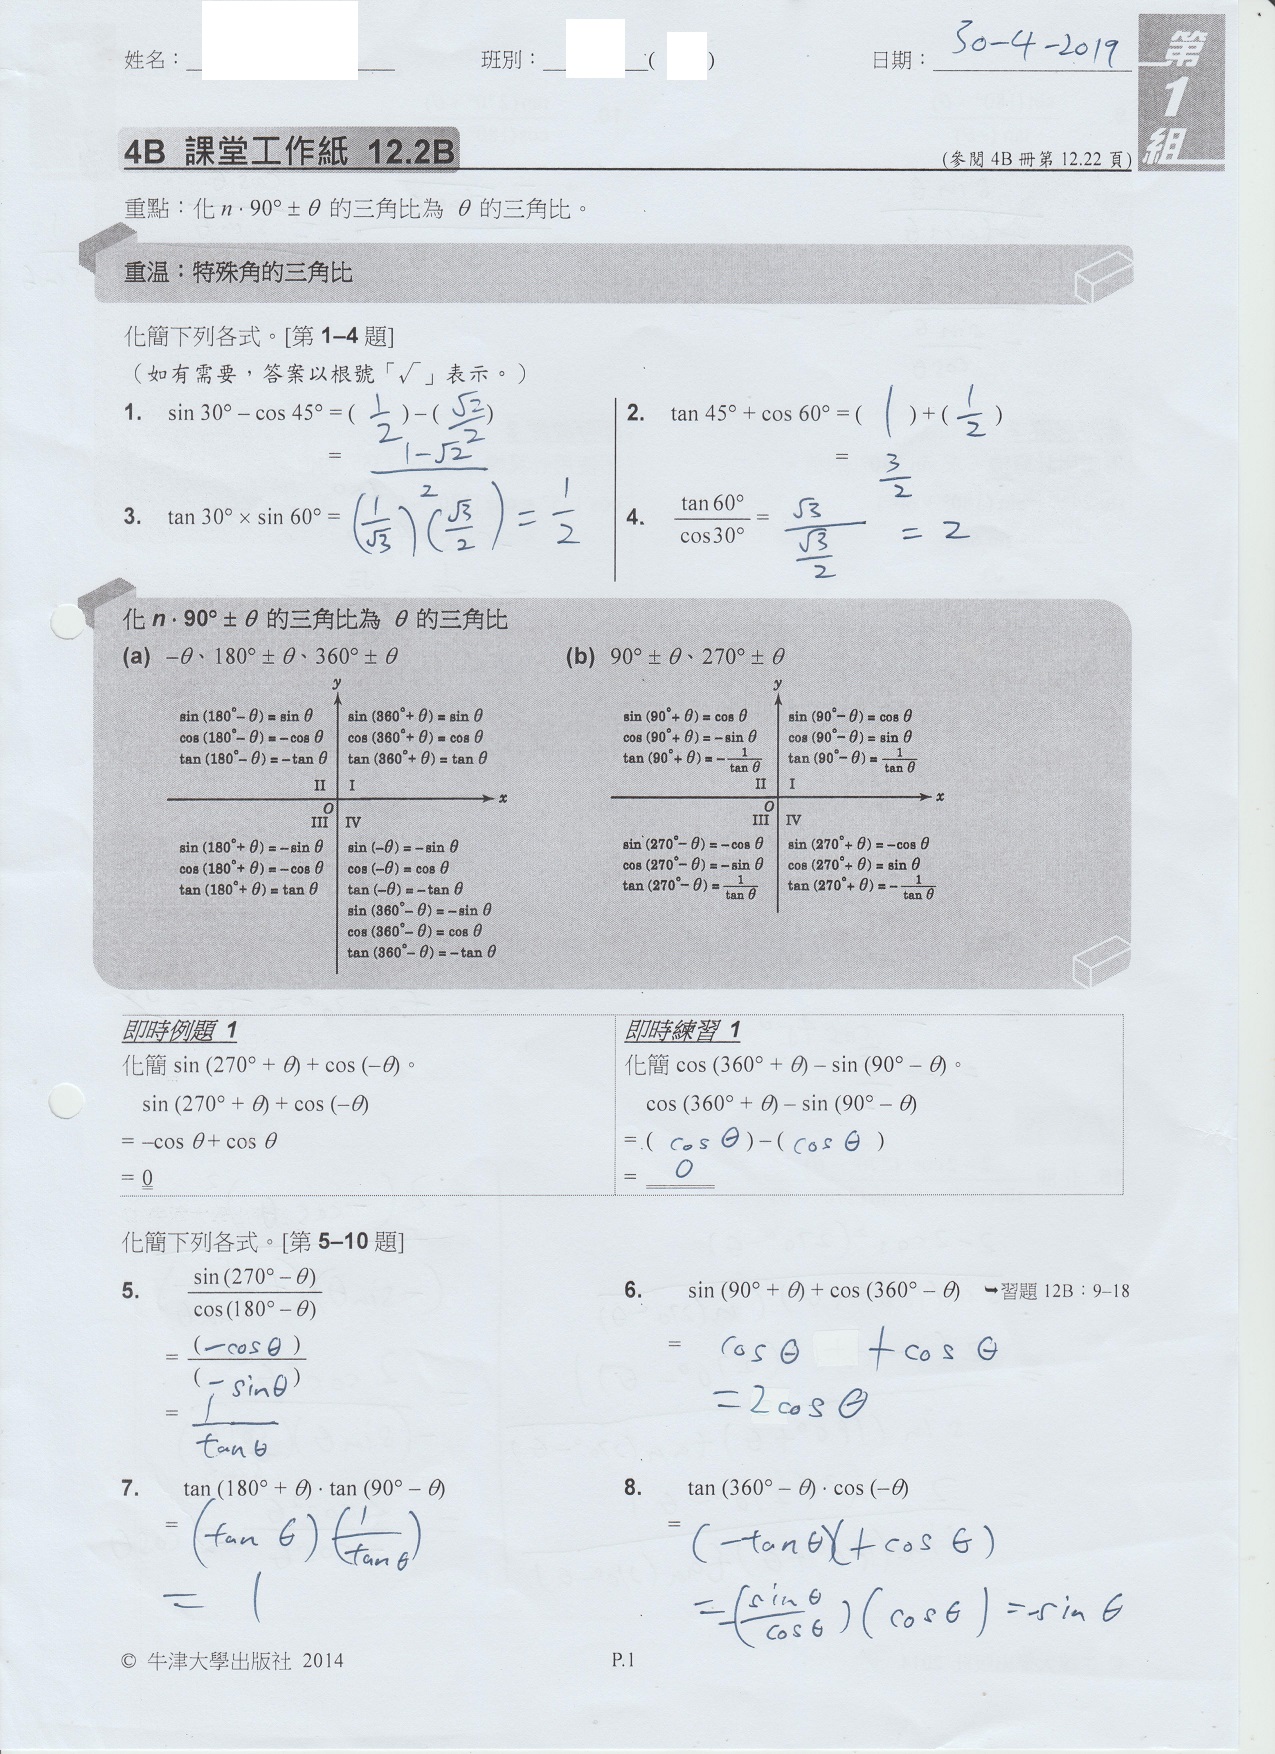 姓名： 班別： ( ) 日期： 30-4-2019
第1組
4B 課堂工作紙 12.2B
(參閱 4B 冊第 12.22 頁)
重點：化 n · 90° ± θ 的三角比為 θ 的三角比。
重溫：特殊角的三角比
化簡下列各式。[第 1–4 題]
（如有需要，答案以根號「√」表示。）
1. sin 30° – cos 45° = ( 1/2 ) – ( √2/2 )
= (1-√2)/2
2. tan 45° + cos 60° = ( 1 ) + ( 1/2 )
= 3/2
3. tan 30° × sin 60° = (1/√3)(√3/2) = 1/2
4. tan 60°/cos 30° = √3/(√3/2) = 2
化 n · 90° ± θ 的三角比為 θ 的三角比
(a) –θ、180° ± θ、360° ± θ
y
sin (180°– θ) = sin θ
cos (180°– θ) = –cos θ
tan (180°– θ) = –tan θ
II
sin (360°+ θ) = sin θ
cos (360°+ θ) = cos θ
tan (360°+ θ) = tan θ
I
x
O
III
sin (180°+ θ) = –sin θ
cos (180°+ θ) = –cos θ
tan (180°+ θ) = tan θ
IV
sin (–θ) = –sin θ
cos (–θ) = cos θ
tan (–θ) = –tan θ
sin (360°– θ) = –sin θ
cos (360°– θ) = cos θ
tan (360°– θ) = –tan θ
(b) 90° ± θ、270° ± θ
y
sin (90°+ θ) = cos θ
cos (90°+ θ) = –sin θ
tan (90°+ θ) = –1/tan θ
II
sin (90°– θ) = cos θ
cos (90°– θ) = sin θ
tan (90°– θ) = 1/tan θ
I
x
O
III
sin (270°– θ) = –cos θ
cos (270°– θ) = –sin θ
tan (270°– θ) = 1/tan θ
IV
sin (270°+ θ) = –cos θ
cos (270°+ θ) = sin θ
tan (270°+ θ) = –1/tan θ
即時例題 1
化簡 sin (270° + θ) + cos (–θ)。
sin (270° + θ) + cos (–θ)
= –cos θ + cos θ
= 0
即時練習 1
化簡 cos (360° + θ) – sin (90° – θ)。
cos (360° + θ) – sin (90° – θ)
= ( cos θ ) – ( cos θ )
= 0
化簡下列各式。[第 5–10 題]
5. sin (270° – θ)/cos (180° – θ)
= (-cosθ)/(-sinθ)
= 1/tanθ
6. sin (90° + θ) + cos (360° – θ) ➥習題 12B：9–18
= cos θ + cos θ
= 2cos θ
7. tan (180° + θ) · tan (90° – θ)
= (tan θ)(1/tanθ)
= 1
8. tan (360° – θ) · cos (–θ)
= (-tanθ)(+cos θ)
= -(sinθ/cosθ)(cosθ) = -sin θ
© 牛津大學出版社 2014
P.1